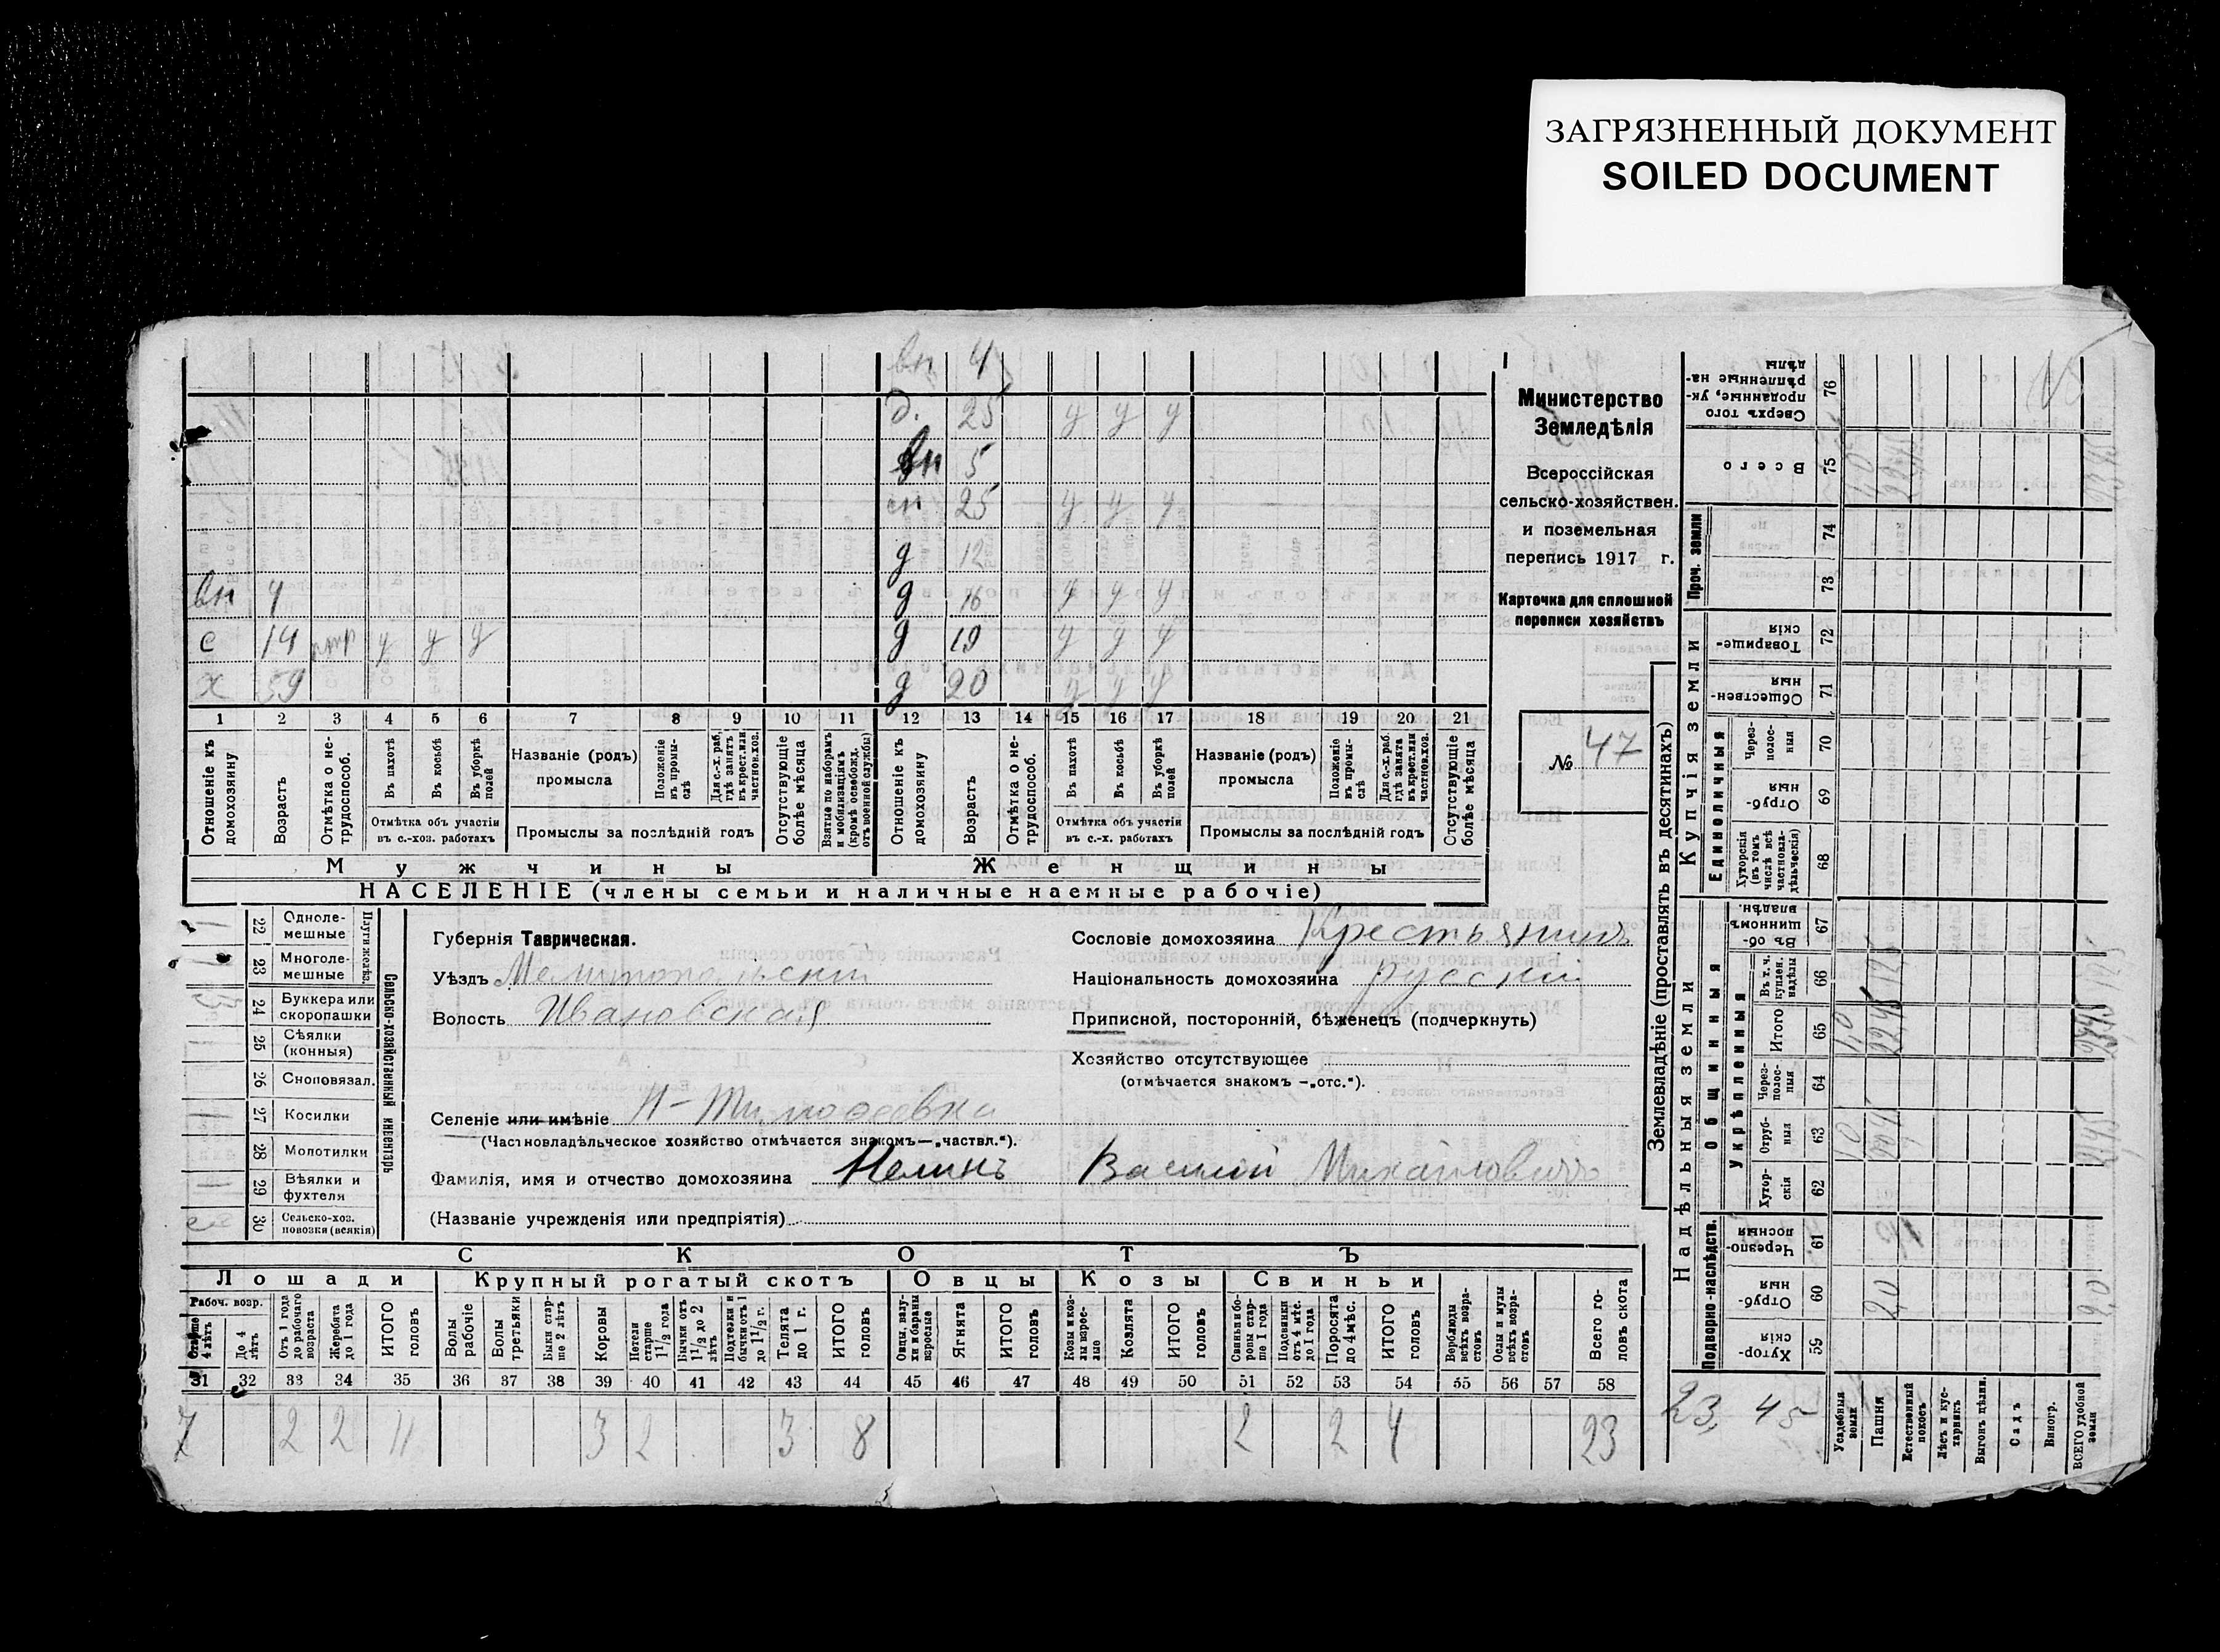 ЗАГРЯЗНЕННЫЙ ДОКУМЕНТ
SOILED DOCUMENT
вн 4
д. 25 у у у
вн 5
сн 25 у у у
д 12
вн 4 д 16 у у у
с 14 у у у д 19 у у у
х 59 д 20 у у у
1 2 3 4 5 6 7 8 9 10 11 12 13 14 15 16 17 18 19 20 21
Отношеніе къ домохозяину
Возрастъ
Отмѣтка о не-трудоспособ.
Въ пахотѣ
Въ косьбѣ
Въ уборкѣ полей
Отмѣтка объ участіи въ с.-хоз. работахъ
Названіе (родъ) промысла
Положеніе въ промы-слѣ
Для с.-х. раб. гдѣ занятъ въ крест. или частнов. хоз.
Промыслы за послѣдній годъ
Отсутствующіе болѣе мѣсяца
Взятые по наборамъ и мобилизаціямъ (кромѣ освобожд. отъ военной службы)
Отношеніе къ домохозяину
Возрастъ
Отмѣтка о не-трудоспособ.
Въ пахотѣ
Въ косьбѣ
Въ уборкѣ полей
Отмѣтка объ участіи въ с.-х. работахъ
Названіе (родъ) промысла
Положеніе въ промы-слѣ
Для с.-х. раб. гдѣ занята въ крест. или частнов. хоз.
Промыслы за послѣдній годъ
Отсутствующіе болѣе мѣсяца
Мужчины Женщины
НАСЕЛЕНІЕ (члены семьи и наличные наемные рабочіе)
Министерство
Земледѣлія
Всероссійская
сельско-хозяйствен.
и поземельная
перепись 1917 г.
Карточка для сплошной
переписи хозяйствъ
№ 47
22 Одноле-мешные
23 Многоле-мешные
Плуги желѣз.
24 Буккера или скоропашки
25 Сѣялки (конныя)
26 Сноповязал.
27 Косилки
28 Молотилки
29 Вѣялки и фухтеля
30 Сельско-хоз. повозки (всякія)
Сельско-хозяйственный инвентарь
Губернія Таврическая.
Уѣздъ Мелитопольскій
Волость Ивановская
Сословіе домохозяина Крестьянинъ
Національность домохозяина русскій
Приписной, посторонній, бѣженецъ (подчеркнуть)
Хозяйство отсутствующее
(отмѣчается знакомъ —„отс.“).
Селеніе или имѣніе Н-Тимофеевка
(Частновладѣльческое хозяйство отмѣчается знакомъ—„частвл.“).
Фамилія, имя и отчество домохозяина Василій Михайловичъ
(Названіе учрежденія или предпріятія)
СКОТЪ
Лошади Крупный рогатый скотъ Овцы Козы Свиньи
Рабоч. возр.
Старше 4 лѣтъ
До 4 лѣтъ
Отъ 1 года до рабочаго возраста
Жеребята до 1 года
ИТОГО головъ
Волы рабочіе
Волы третьяки
Быки стар-ше 2 лѣтъ
Коровы
Нетели старше 1 1/2 года
Бычки отъ 1 1/2 до 2 лѣтъ
Подтелки и бычки отъ 1 до 1 1/2 г.
Телята до 1 г.
ИТОГО головъ
Овцы, валу-хи и бараны взрослые
Ягнята
ИТОГО головъ
Козы и коз-лы взрос-лые
Козлята
ИТОГО головъ
Свиньи и бо-ровы стар-ше 1 года
Подсвинки отъ 4 мѣс. до 1 года
Поросята до 4 мѣс.
ИТОГО головъ
Верблюды всѣхъ возра-стовъ
Ослы и мулы всѣхъ возра-стовъ
Всего го-ловъ скота
31 32 33 34 35 36 37 38 39 40 41 42 43 44 45 46 47 48 49 50 51 52 53 54 55 56 57 58
7 2 2 11 3 2 3 8 2 2 4 23
Землевладѣніе (проставлять въ десятинахъ)
Надѣльныя земли Купчія земли Проч. земли
Подворно-наслѣдств.
Общинныя
Укрѣпленныя
Единоличныя
Хутор-скія 59
Отруб-ныя 60
Черезпо-лосныя 61
Хутор-скія 62
Отруб-ныя 63
Через-полос-ныя 64
Итого 65
Въ т. ч. куплен. надѣлы 66
Въ об-щинномъ владѣн. 67
Хуторскія (въ томъ числѣ всѣ частновла-дѣльческія) 68
Отруб-ныя 69
Через-полос-ныя 70
Обществен-ныя 71
Товарище-скія 72
73
74
Всего 75
Сверхъ того проданные, ук-рѣпленные на-дѣлы 76
23, 45
Усадебныя земли
Пашня
Естественный покосъ
Лѣсъ и кус-тарникъ
Выгонъ цѣлин.
Садъ
Виногр.
ВСЕГО удобной земли